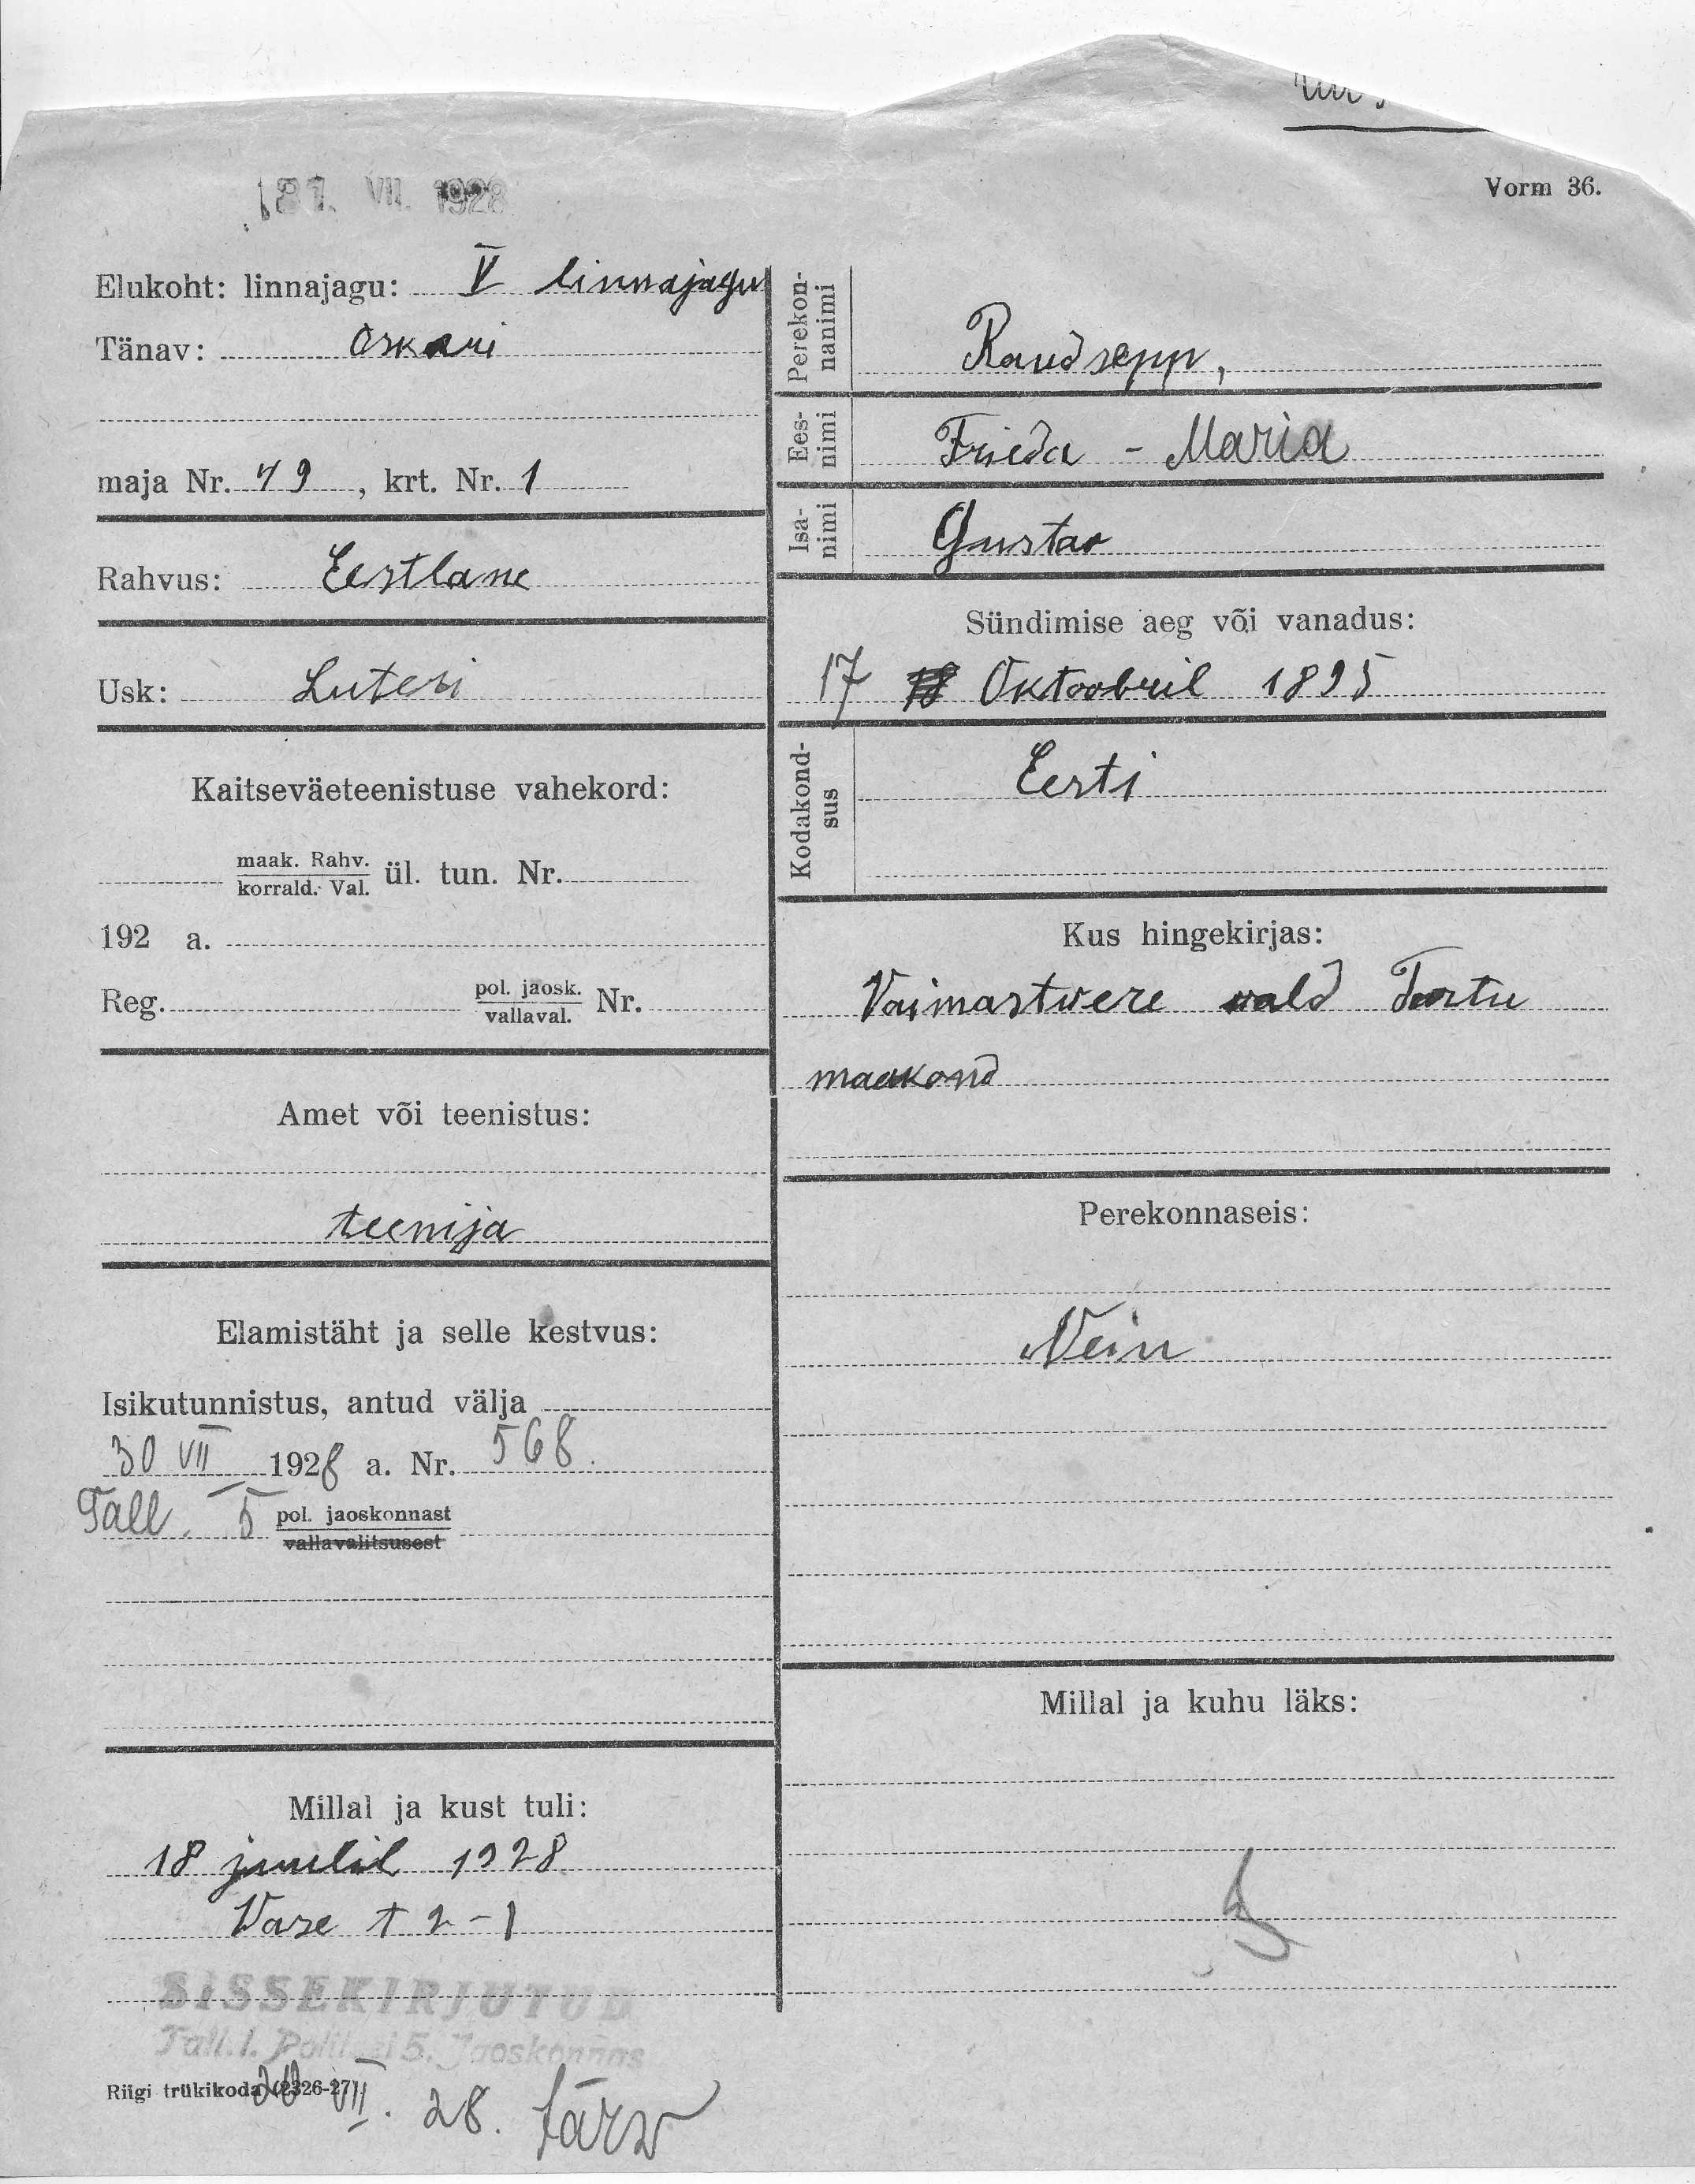 31. VII. 1928
Vorm 36.
Elukoht: linnajagu: V linnajagu
Tänav: Oskari
maja Nr. 79, krt. Nr. 1
Rahvus: Eestlane
Usk: Luteri
Kaitseväeteenistuse vahekord:
maak. Rahv.
korrald. Val. ül. tun. Nr.
192 a.
Reg. pol. jaosk.
vallaval. Nr.
Amet või teenistus:
teenija
Elamistäht ja selle kestvus:
Isikutunnistus, antud välja
30 VII 1928 a. Nr. 568.
Tall. 5 pol. jaoskonnast
vallavalitsusest
Millal ja kust tuli:
18 juulil 1928
Vase t 2-1
SISSEKIRJUTUD
Tall.l. Politsei 5. Jaoskonnas
Riigi trükikoda (2326-27)
VII. 28. Järw
Perekon-
nanimi
Raudsepp,
Ees-
nimi
Frieda - Maria
Isa-
nimi
Gustav
Sündimise aeg või vanadus:
17 18 Oktoobril 1895
Kodakond-
sus
Eesti
Kus hingekirjas:
Vaimastvere vald Tartu
maakond
Perekonnaseis:
Nein
Millal ja kuhu läks: